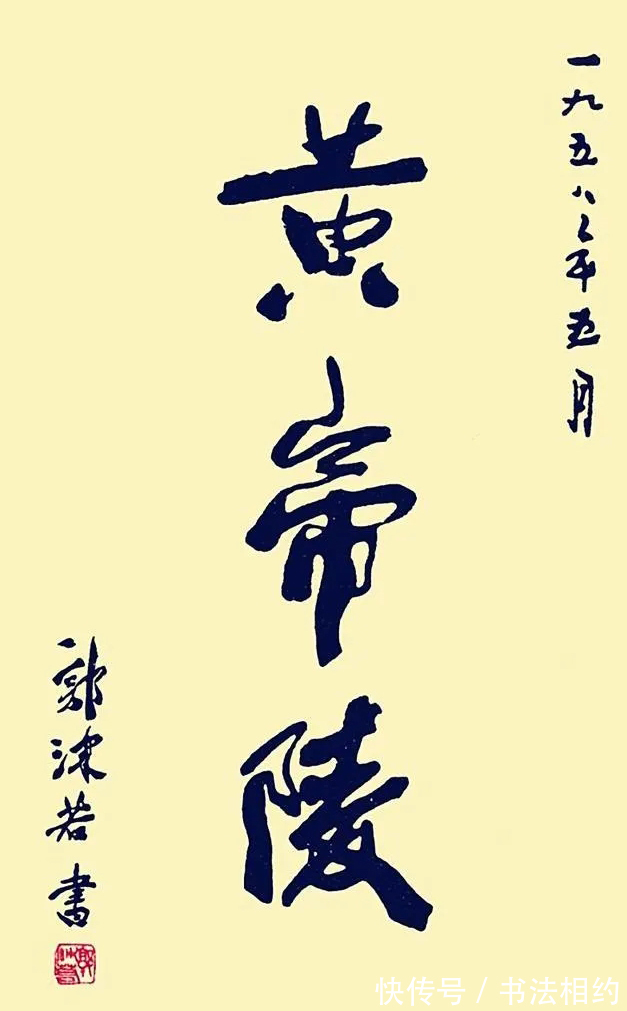 一九五八年五月
黄帝陵
郭沫若书
快传号 / 书法相约